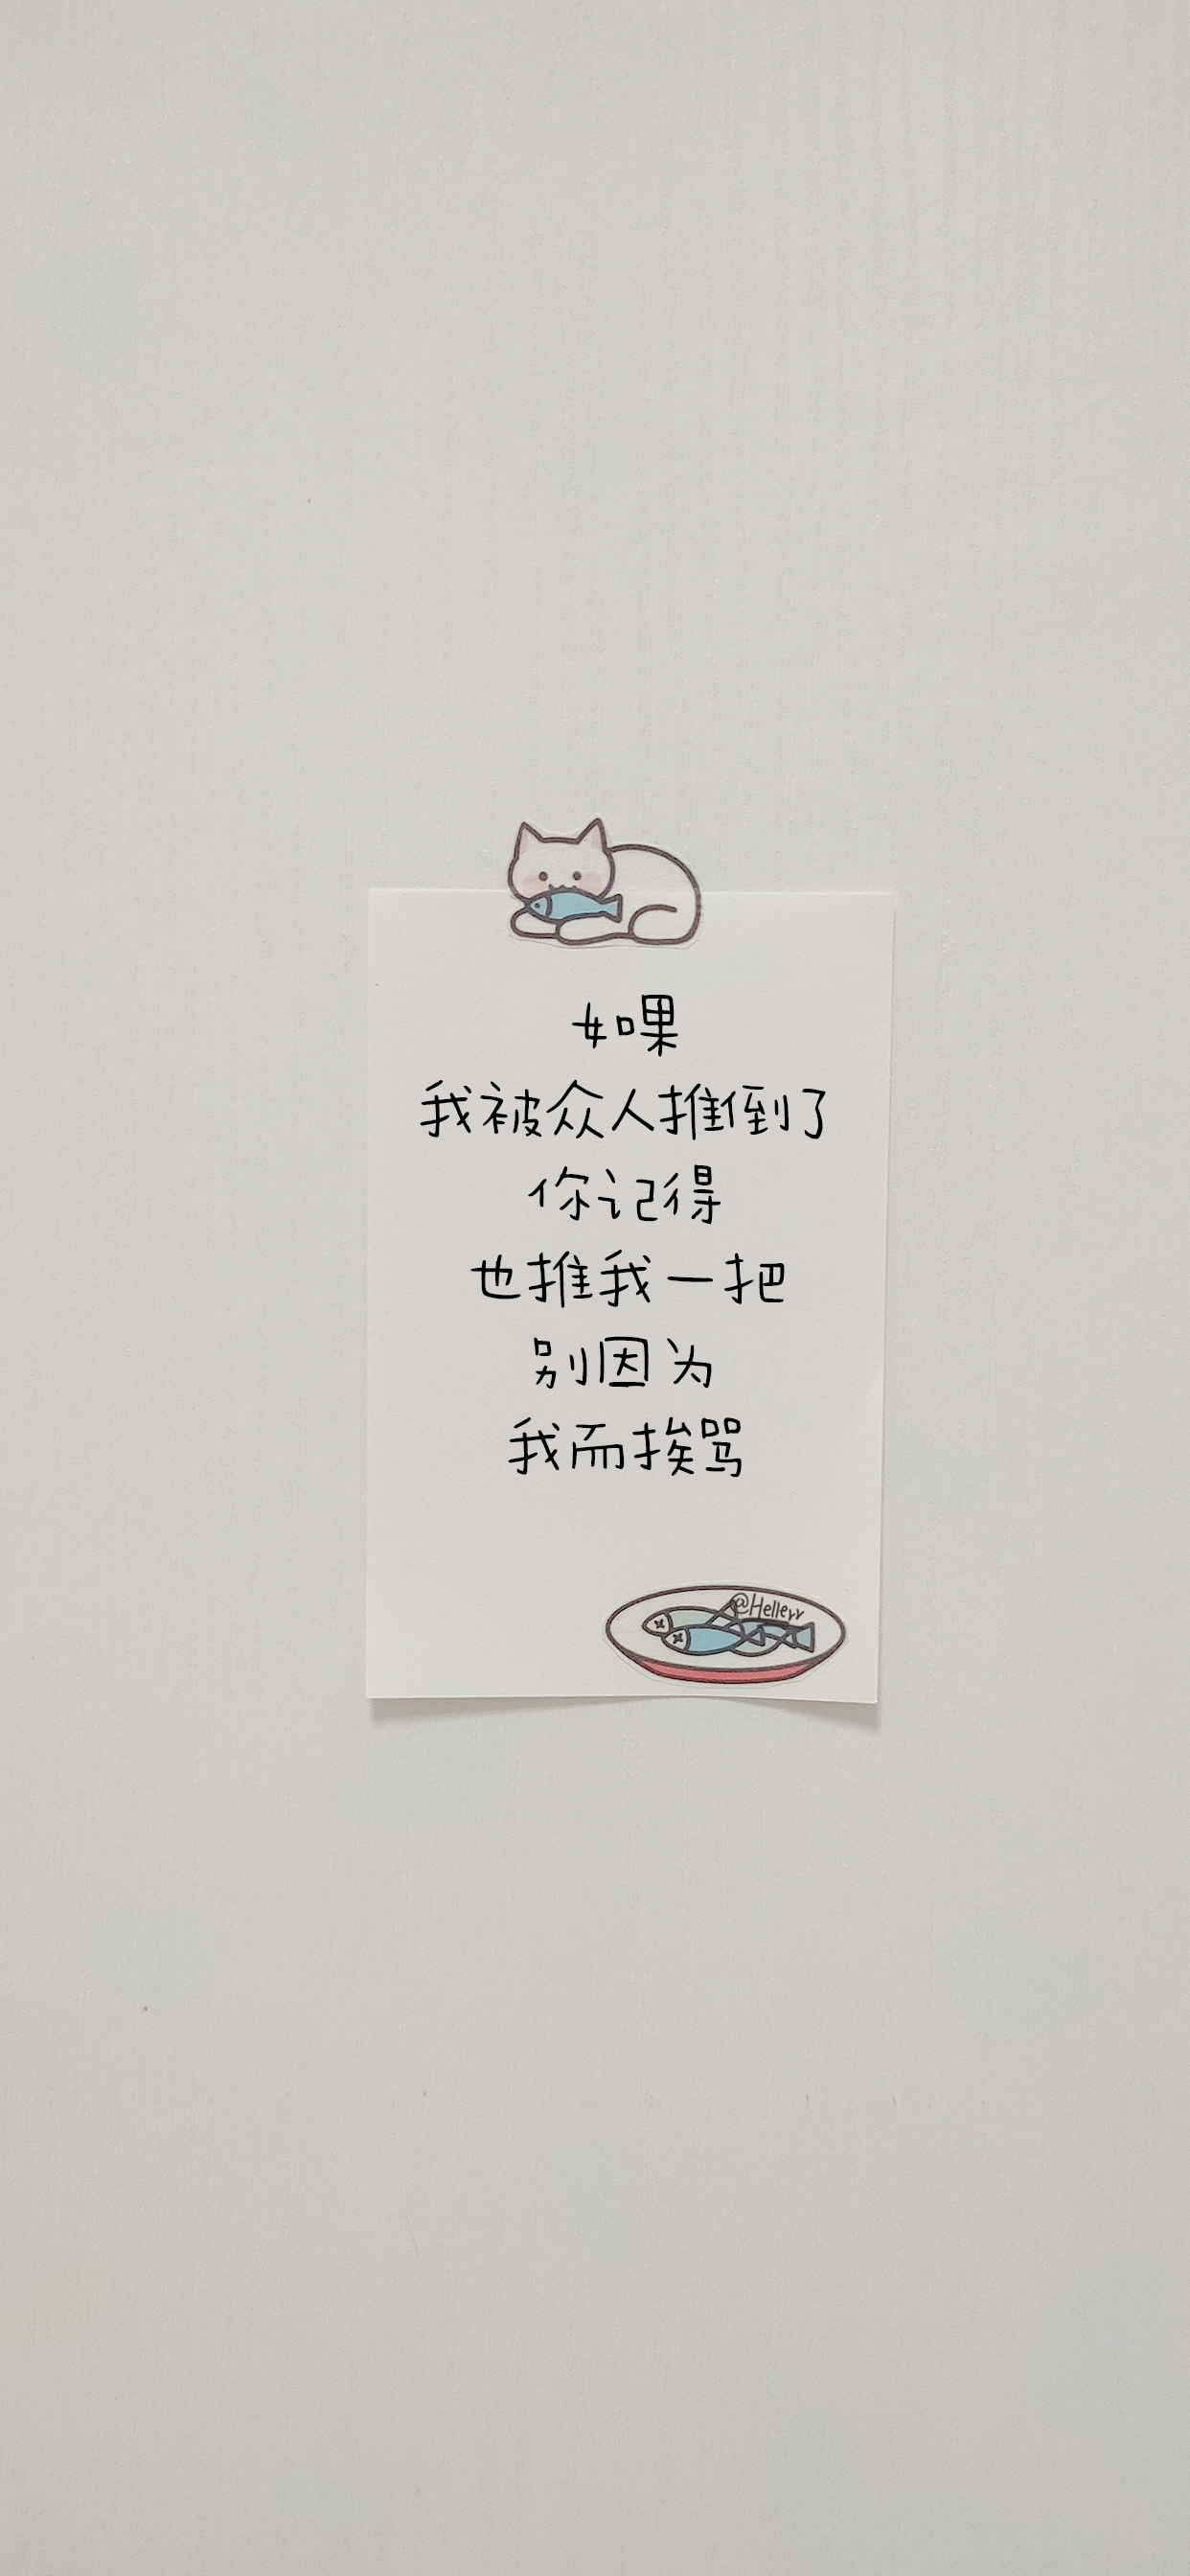 如果
我被众人推倒了
你记得
也推我一把
别因为
我而挨骂
@Hellerr